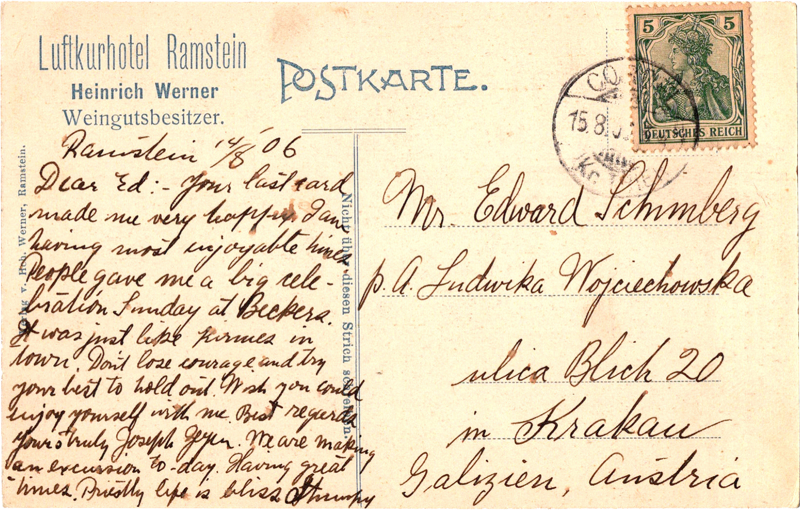 Luftkurhotel Ramstein
Heinrich Werner
Weingutsbesitzer.
POSTKARTE.
5 5
DEUTSCHES REICH
15.8.0
Ramstein 14/8 '06
Dear Ed:- Your last card
made me very happy, I am
having most enjoyable times
People gave me a big cele-
bration Sunday at Beckers.
It was just like kirmes in
town. Don't lose courage and try
your best to hold out. Wish you could
enjoy yourself with me. Best regards
Yours truly Joseph
We are making
an excursion to-day. Having great
times. Priestly life is bliss
Mr. Edward
p. A. Ludwika Wojciechowska
ulica Blich 20
in Krakau
Galizien, Austria
v. Hch. Werner, Ramstein.
Nicht über diesen Strich schreiben.